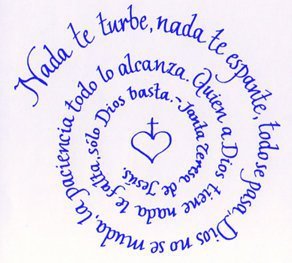 Nada te turbe, nada te espante, todo se pasa, Dios no se muda, la paciencia todo lo alcanza. Quien a Dios tiene nada te falta, sólo Dios basta.~Santa Teresa de Jesús.